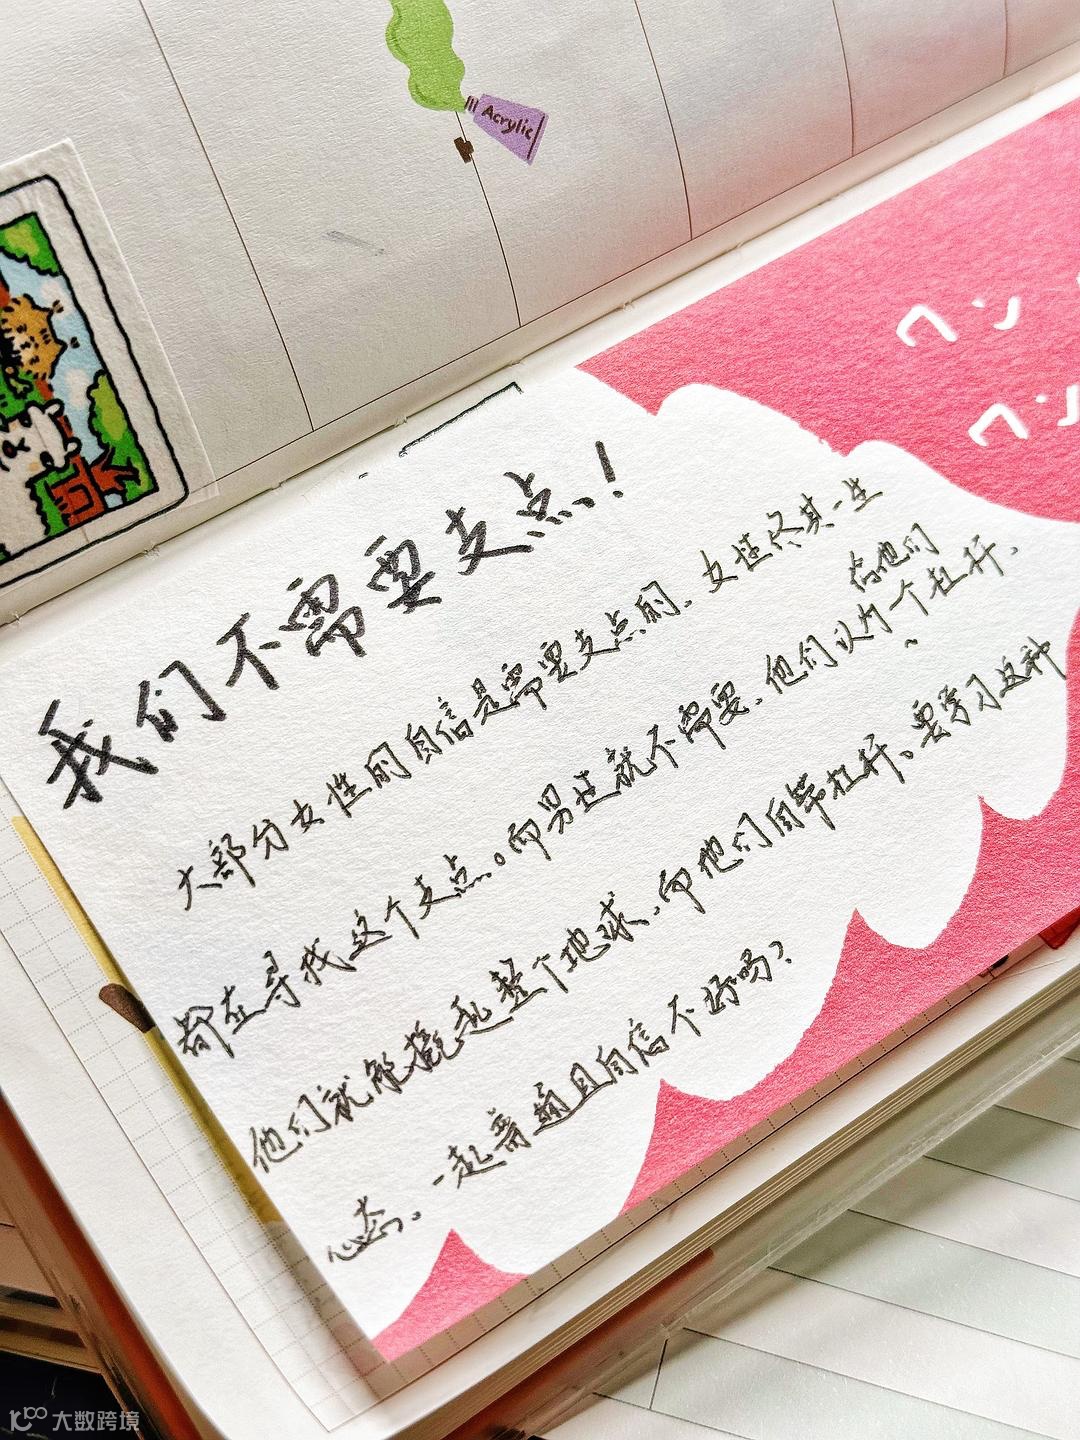 Acrylic
ワン
ワン
我们不需要支点!
大部分女性的自信是需要支点的,女性终其一生
都在寻找这个支点。而男性就不需要,他们以为给他们一个杠杆,
他们就能撬起整个地球,而他们自带杠杆。要学习这种
心态。一起普通且自信不好吗?
大数跨境